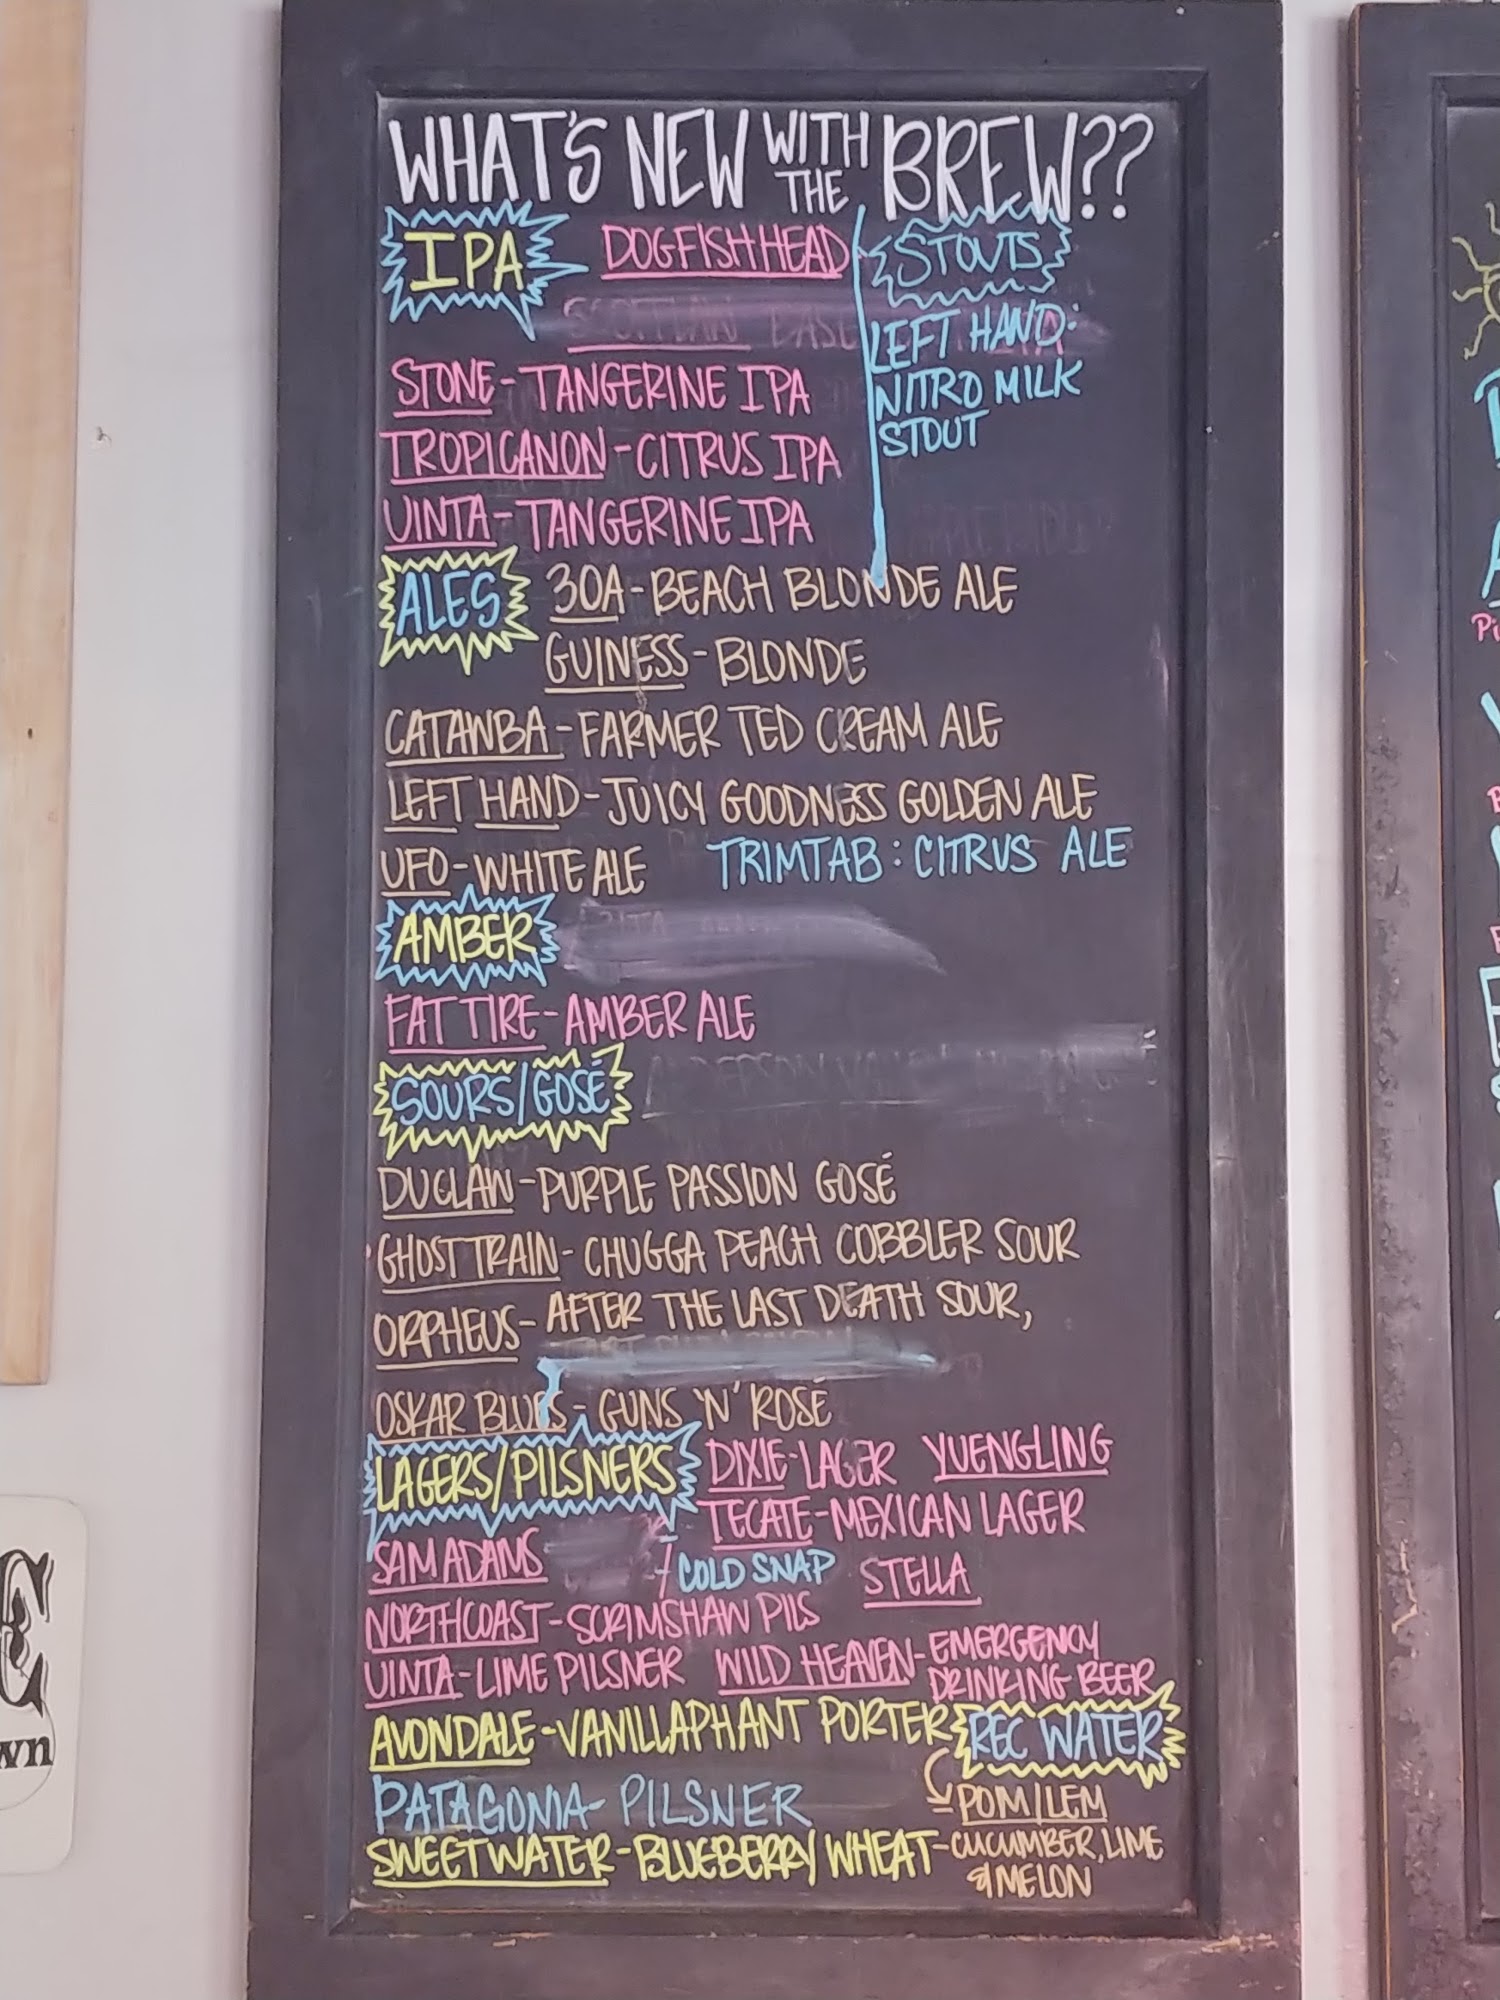 WHAT'S NEW WITH THE BREW??
IPA DOGFISHHEAD
STONE-TANGERINE IPA
TROPICANON-CITRUS IPA
UINTA-TANGERINE IPA
STOUTS
LEFT HAND:
NITRO MILK
STOUT
ALES 30A-BEACH BLONDE ALE
GUINESS-BLONDE
CATAWBA-FARMER TED CREAM ALE
LEFT HAND-JUICY GOODNESS GOLDEN ALE
UFO-WHITE ALE TRIMTAB: CITRUS ALE
AMBER
FAT TIRE-AMBER ALE
SOURS/GOSÉ
DUCLAW-PURPLE PASSION GOSÉ
GHOST TRAIN-CHUGGA PEACH COBBLER SOUR
ORPHEUS-AFTER THE LAST DEATH SOUR,
OSKAR BLUES-GUNS 'N' ROSÉ
LAGERS/PILSNERS DIXIE-LAGER YUENGLING
TECATE-MEXICAN LAGER
SAM ADAMS / COLD SNAP STELLA
NORTHCOAST-SCRIMSHAW PILS
UINTA-LIME PILSNER WILD HEAVEN-EMERGENCY
DRINKING BEER
AVONDALE-VANILLAPHANT PORTER
PATAGONIA-PILSNER
SWEETWATER-BLUEBERRY WHEAT
REC WATER
POM/LEM
-CUCUMBER, LIME
& MELON
wn